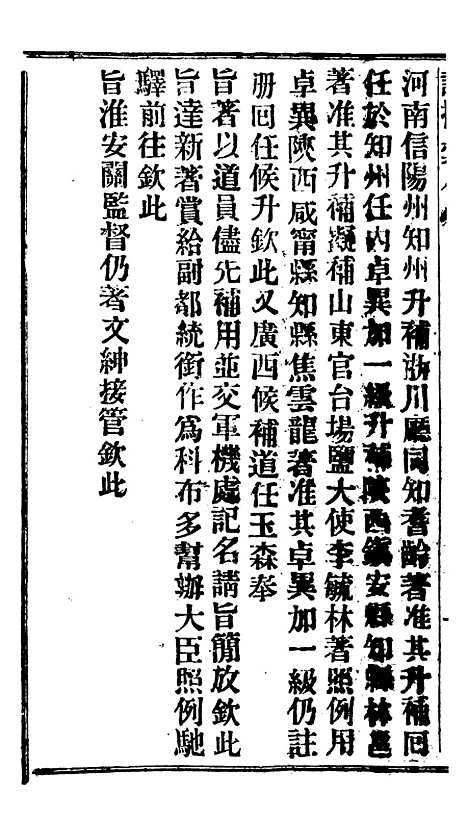 河南信陽州知州升補淅川廳同知耆齡著准其升補回
任於知州任內卓異加一級升補陝西鎮安縣知縣林
著准其升補擬補山東官台場鹽大使李毓林著照例用
卓異陝西咸甯縣知縣焦雲龍著准其卓異加一級仍註
册回任候升欽此又廣西候補道任玉森奉
旨著以道員儘先補用並交軍機處記名請旨簡放欽此
旨達新著賞給副都統銜作爲科布多幫辦大臣照例馳
驛前往欽此
旨淮安關監督仍著文紳接管欽此